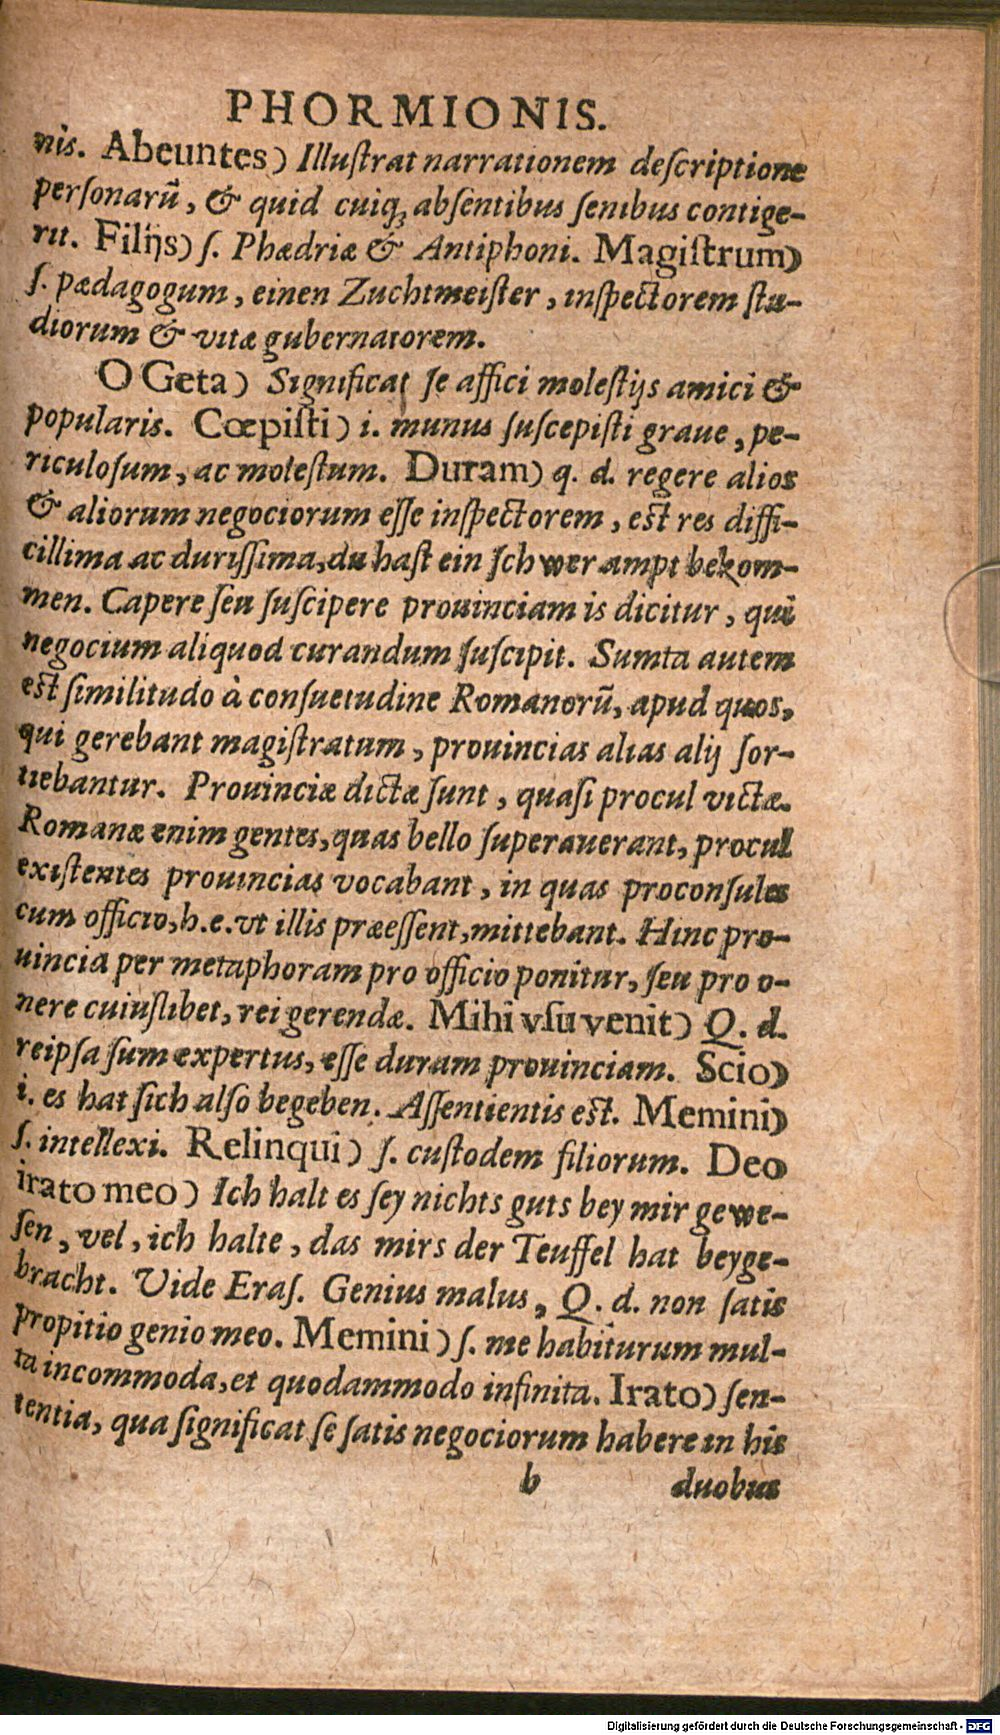 PHORMIONIS.
nis. Abeuntes) Illuſtrat narrationem deſcriptione
perſonarū, & quid cuiq; abſentibus ſenibus contige-
rit. Filijs) ſ. Phædriæ & Antiphoni. Magiſtrum)
ſ. pædagogum, einen Zuchtmeiſter, inſpectorem ſtu-
diorum & vitæ gubernatorem.
O Geta) Significat ſe affici moleſtijs amici &
popularis. Cœpiſti) i. munus ſuſcepiſti graue, pe-
riculoſum, ac moleſtum. Duram) q. d. regere alios
& aliorum negociorum eſſe inſpectorem, eſt res diffi-
cillima ac duriſſima, du haſt ein ſchwer ampt bekom-
men. Capere ſeu ſuſcipere prouinciam is dicitur, qui
negocium aliquod curandum ſuſcipit. Sumta autem
eſt ſimilitudo à conſuetudine Romanorū, apud quos,
qui gerebant magiſtratum, prouincias alias alij ſor-
tiebantur. Prouinciæ dictæ ſunt, quaſi procul victæ.
Romanæ enim gentes, quas bello ſuperauerant, procul
exiſtentes prouincias vocabant, in quas proconſules
cum officio, h.e. vt illis præeſſent, mittebant. Hinc pro-
uincia per metaphoram pro officio ponitur, ſeu pro o-
nere cuiuſlibet, rei gerendæ. Mihi vſu venit) Q. d.
reipſa ſum expertus, eſſe duram prouinciam. Scio)
i. es hat ſich alſo begeben. Aſſentientis eſt. Memini)
ſ. intellexi. Relinqui) ſ. cuſtodem filiorum. Deo
irato meo) Ich halt es ſey nichts guts bey mir gewe-
ſen, vel, ich halte, das mirs der Teuffel hat beyge-
bracht. Vide Eraſ. Genius malus, Q. d. non ſatis
propitio genio meo. Memini) ſ. me habiturum mul-
ta incommoda, et quodammodo infinita. Irato) ſen-
tentia, qua ſignificat ſe ſatis negociorum habere in his
b duobus
Digitalisierung gefördert durch die Deutsche Forschungsgemeinschaft - DFG